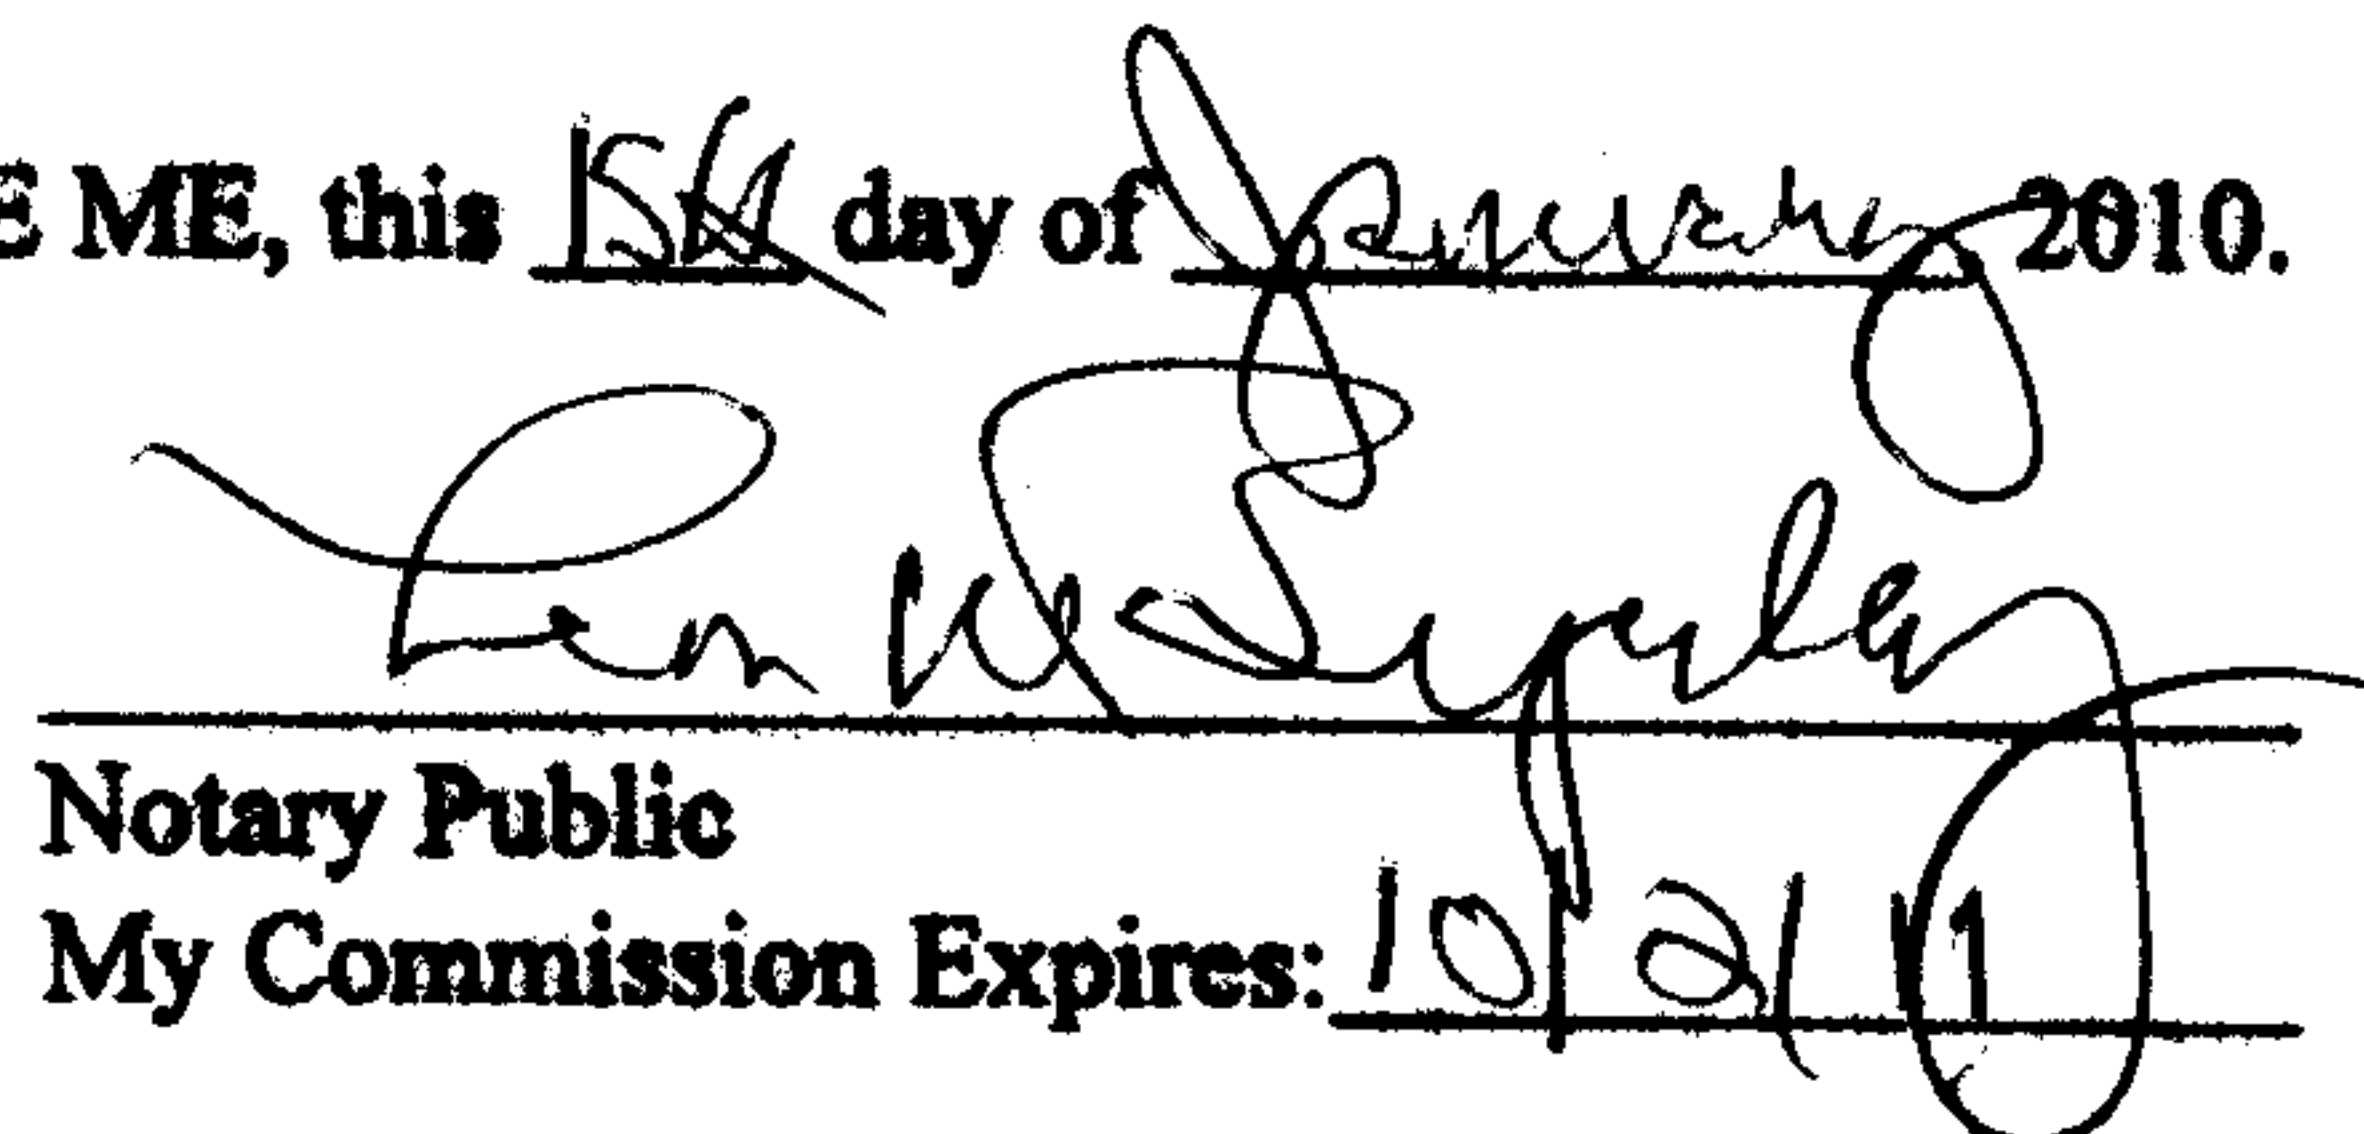 E ME, this 15th day of January 2010.
Notary Public
My Commission Expires: 10/2/11